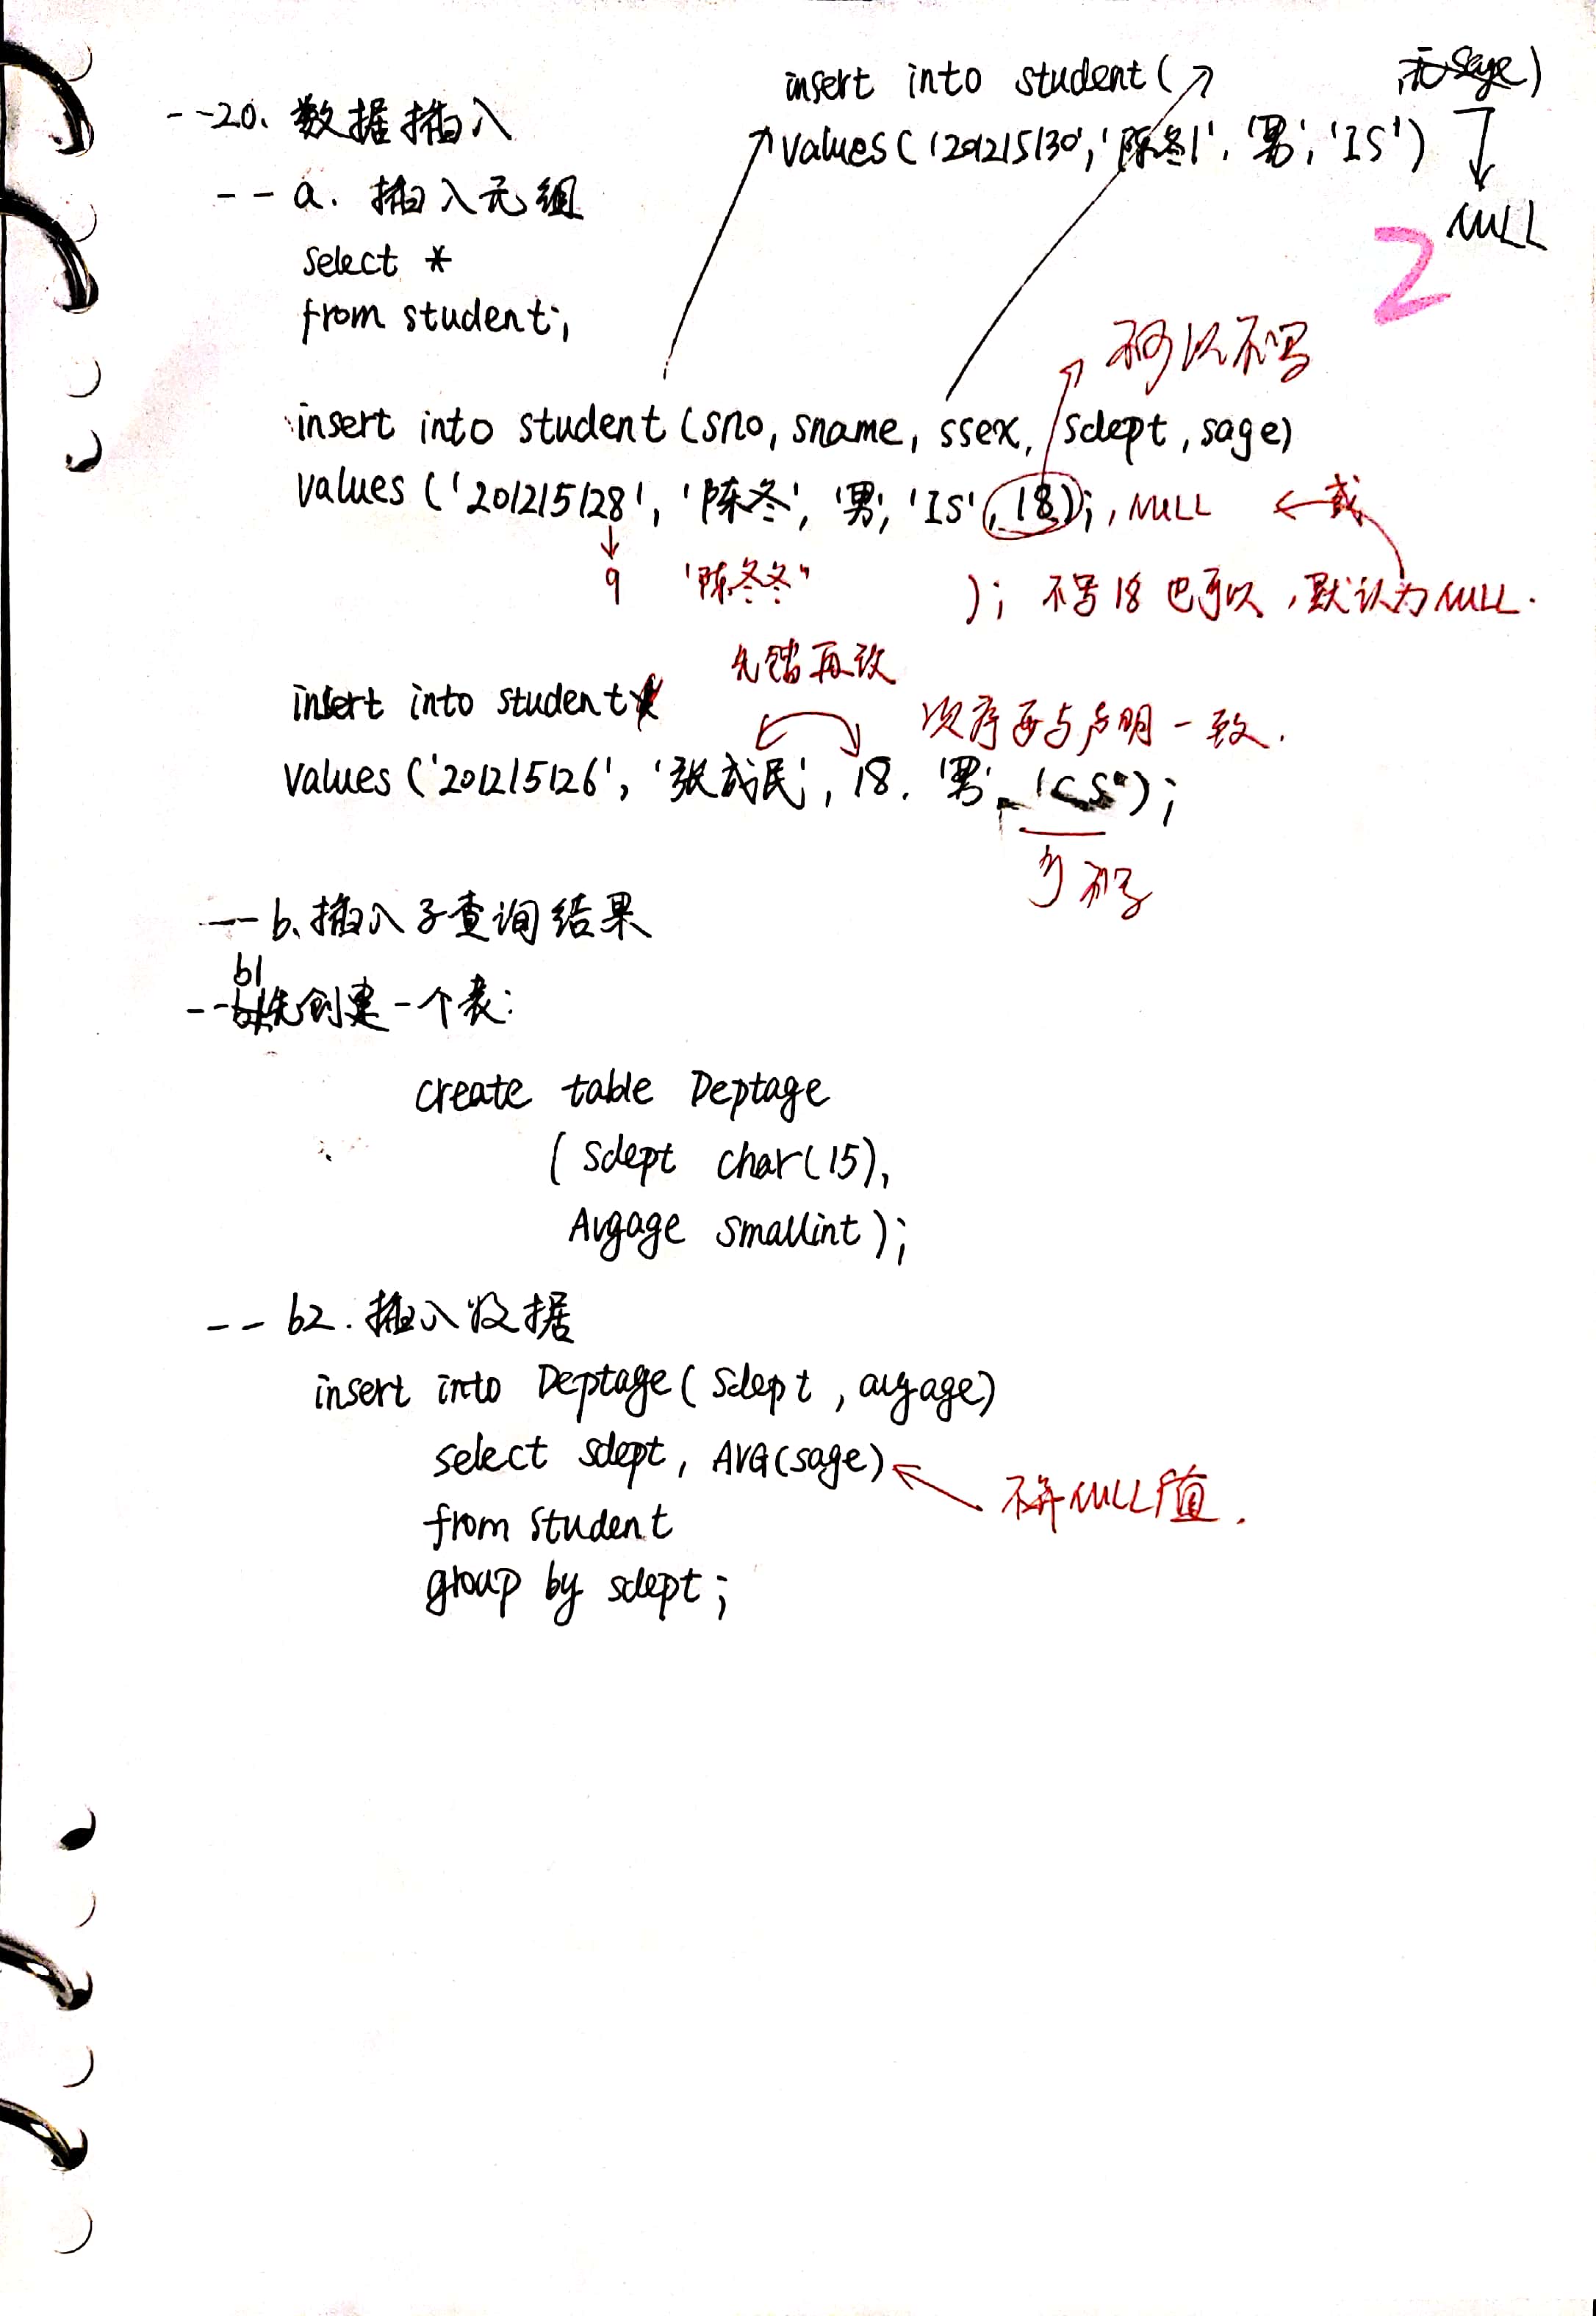 --20. 数据插入
-- a. 插入元组
select *
from student;
insert into student(
无sage)
values('201215130','陈冬1','男','IS')
NULL
2
可以不写
insert into student (sno, sname, ssex, sdept, sage)
values ('201215128', '陈冬', '男', 'IS', 18);, NULL
或
9
'陈冬冬"
); 不写18也可以,默认为NULL.
先错再改
insert into student
次序要与声明一致.
values ('201215126', '张成民', 18. '男', 'CS');
可不写
-- b. 插入子查询结果
b1
--先创建一个表:
create table Deptage
( Sdept char(15),
Avgage smallint);
-- b2. 插入数据
insert into Deptage( Sdept, avgage)
select sdept, AVG(sage)
不算NULL值.
from student
group by sdept;